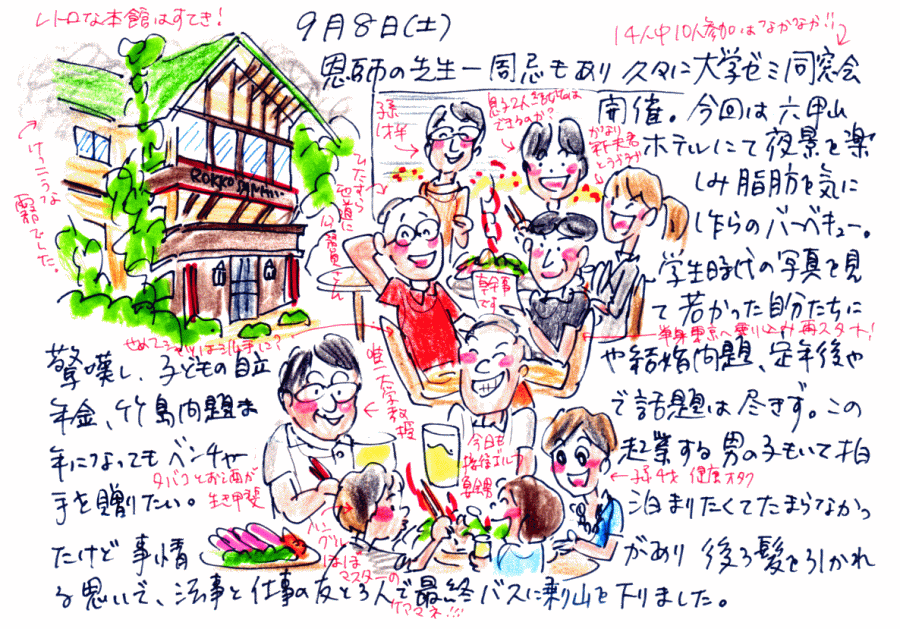 レトロな本館はすてき!
9月8日(土)
14人中10人参加はなかなか!!
恩師の先生一周忌もあり 久々に大学ゼミ同窓会
開催。今回は六甲山
ホテルにて夜景を楽
しみ脂肪を気に
し乍らのバーベキュー。
学生時代の写真を見
て若かった自分たちに
驚嘆し、子どもの自立 や結婚問題、定年後や
年金、竹島問題ま で話題は尽きず。この
年になってもベンチャー 起業する男の子もいて拍
手を贈りたい。 泊まりたくてたまらなかっ
たけど事情 があり 後ろ髪を引かれ
る思いで、法事と仕事の友と3人で最終バスに乗り山を下りました。
けっこうな
霧でした。
ROKKO
孫
1才
息子2人結婚は
できるのか?
ひたすら
地道に
公務員さん
幹事
です
単身東京へ乗り込み再スタート!
唯一大学教授
今日も
指宿ゴルフ
タバコとお酒が
生き甲斐
孫4才 健康オタク
ほぼ
マスターの
ケアマネ!!!